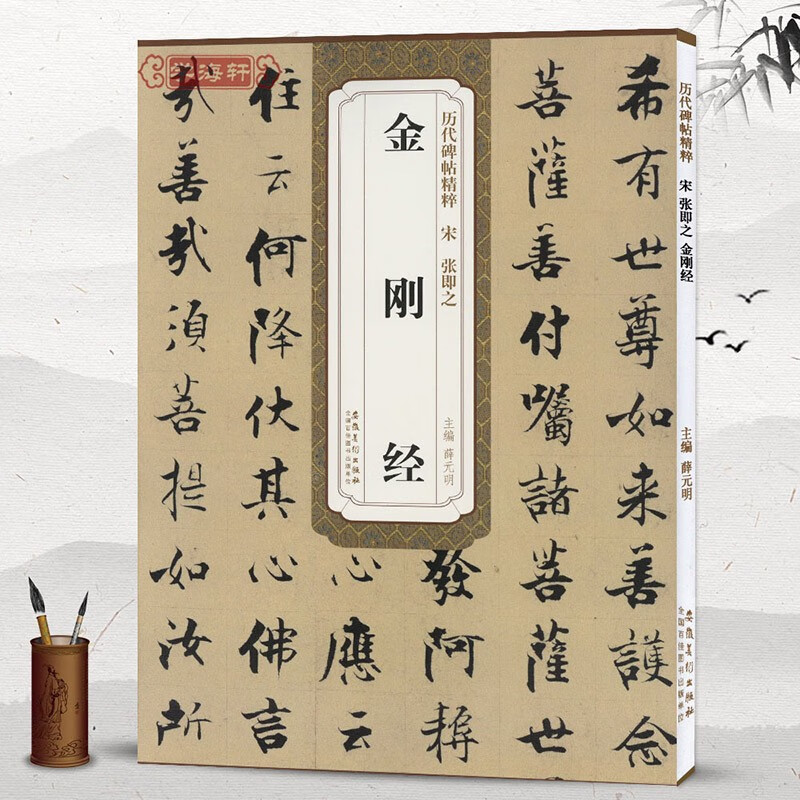 学海轩
历代碑帖精粹 宋 张即之
金刚经
主编 薛元明
安徽美术出版社
全国百佳图书出版单位
希有世尊如来善護念
菩薩善付囑諸菩薩世
發阿耨
心應云
住云何降伏其心佛言
哉善哉須菩提如汝所
历代碑帖精粹 宋 张即之 金刚经
主编 薛元明
安徽美术出版社
全国百佳图书出版单位